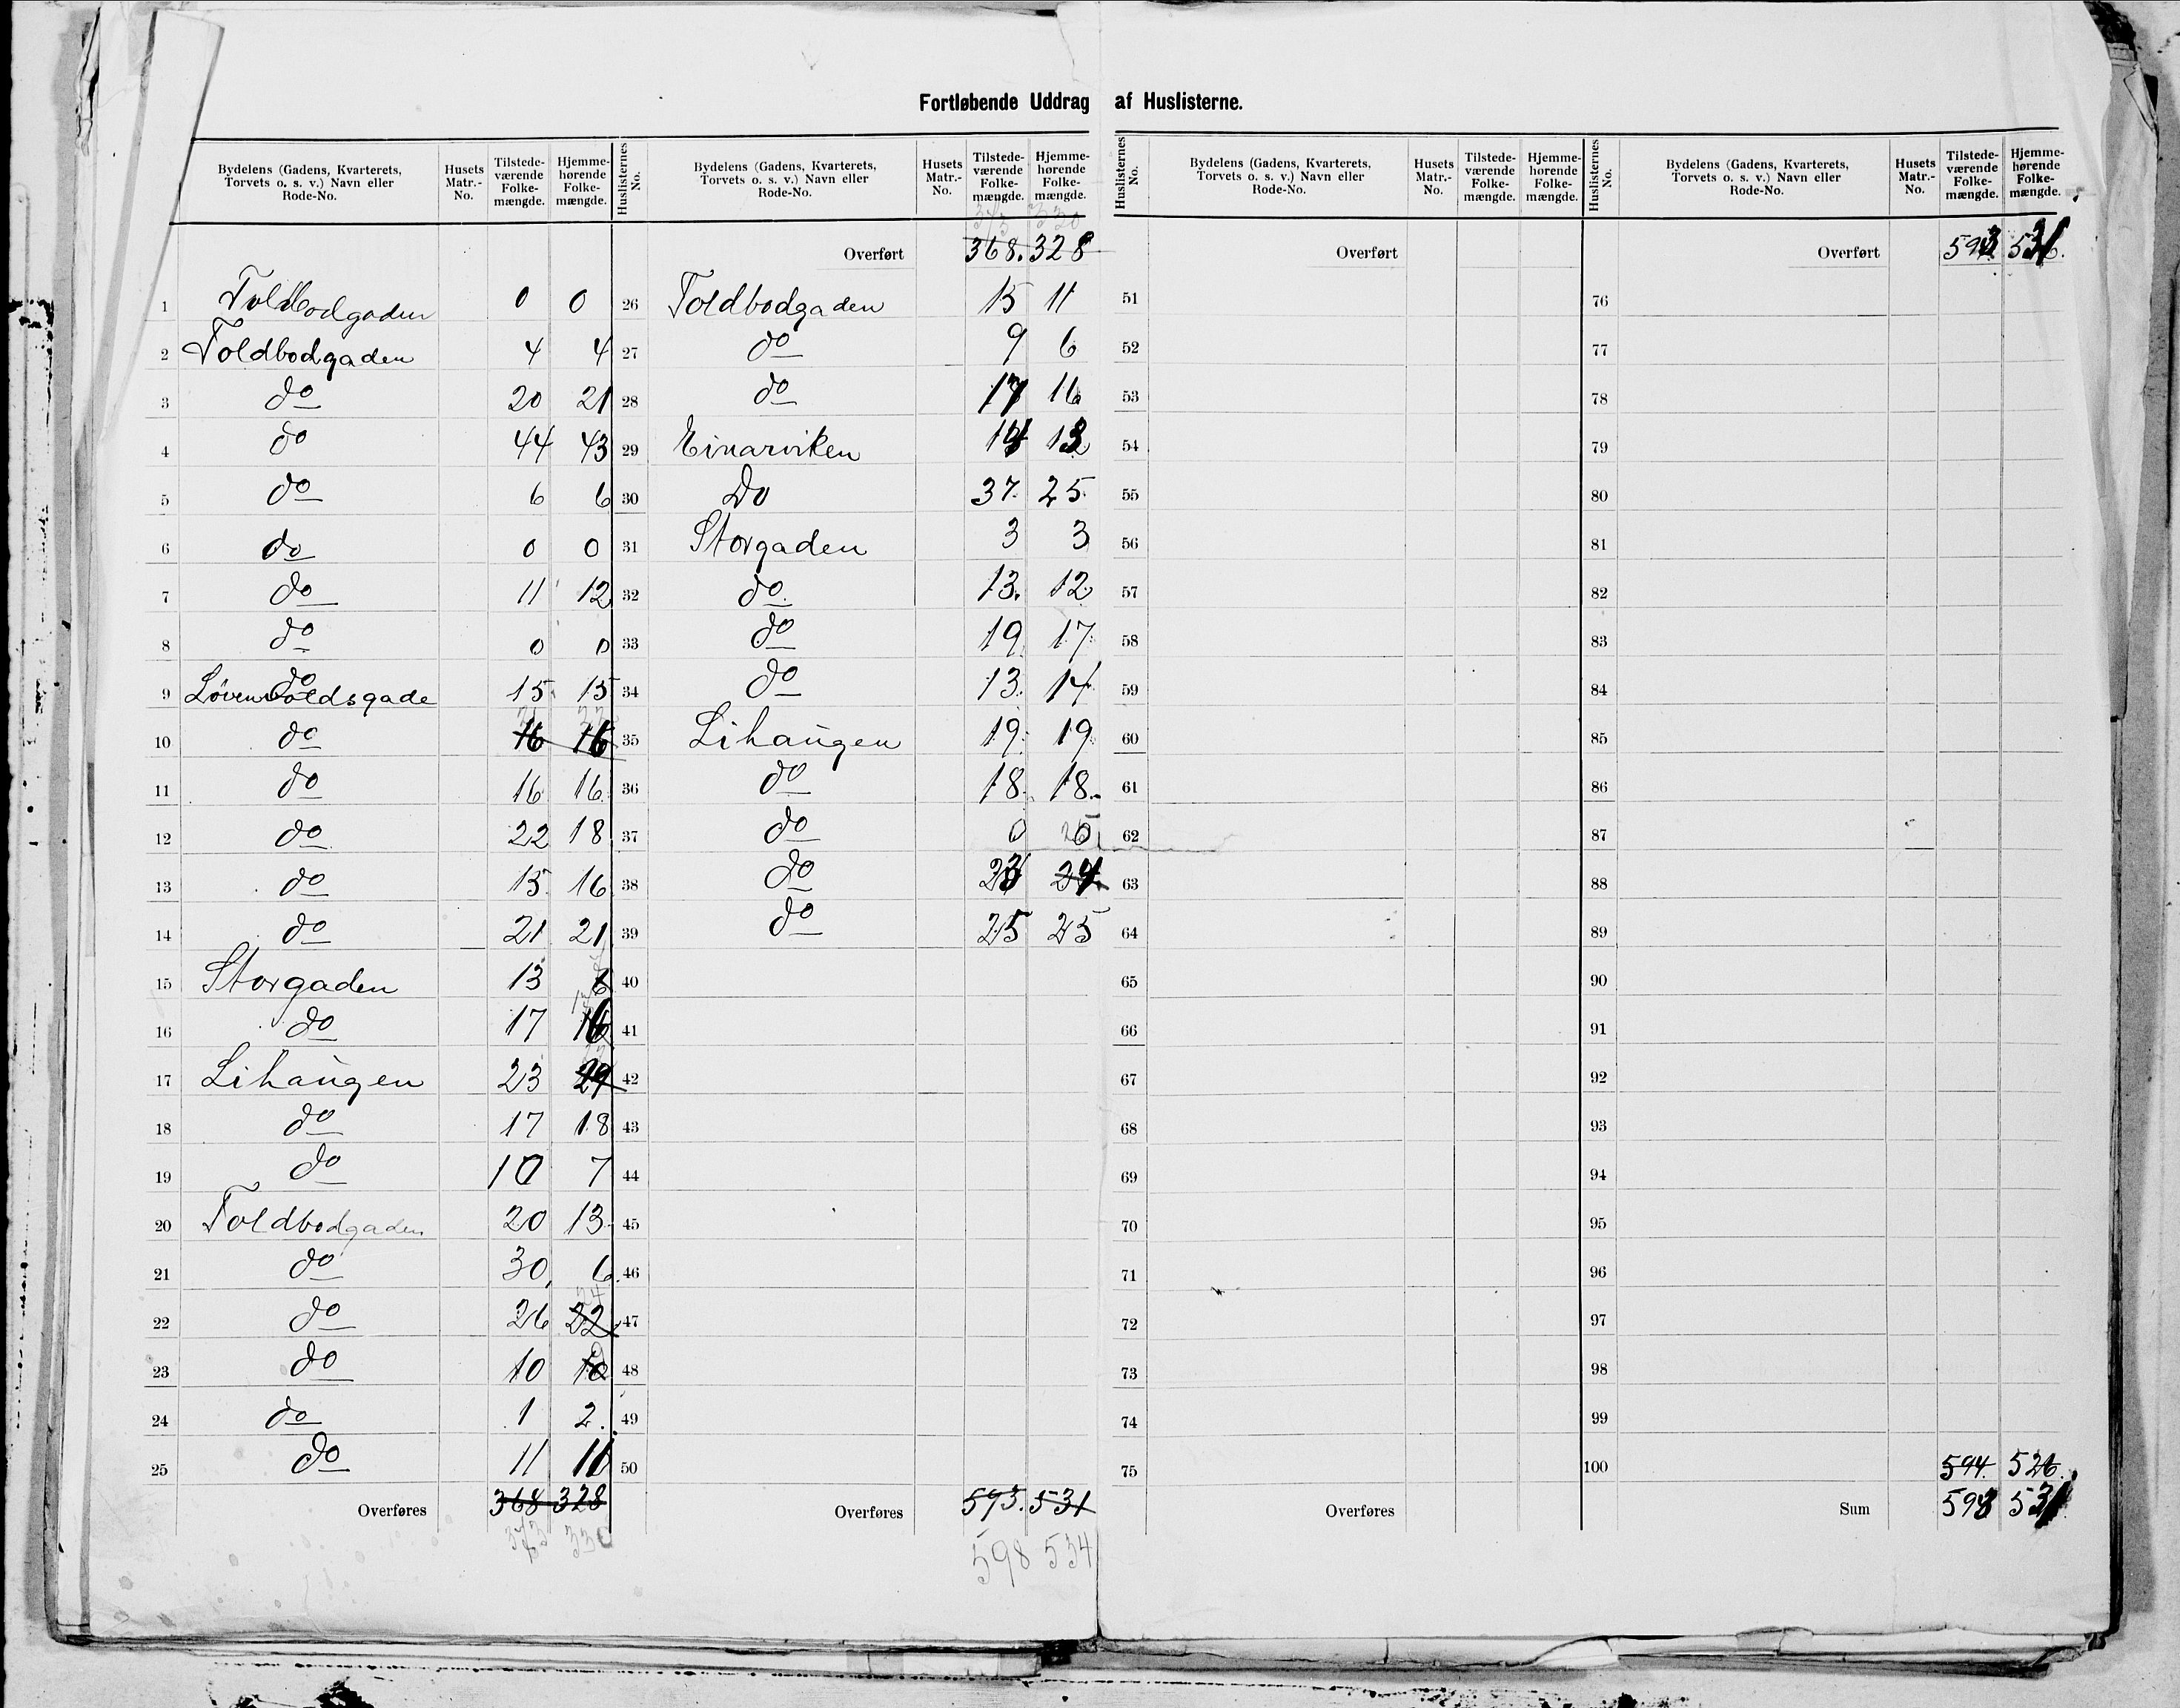 Fortløbende Uddrag af Huslisterne.
Bydelens (Gadens, Kvarterets, Torvets o. s. v.) Navn eller Rode-No. Husets Matr.-No. Tilstede-værende Folke-mængde. Hjemme-hørende Folke-mængde.
1 Toldbodgaden 0 0
2 Toldbodgaden 4 4
3 do 20 21
4 do 44 43
5 do 6 6
6 do 0 0
7 do 11 12
8 do 0 0
9 Løvenvoldsgade 15 15
10 do 16 16
11 do 16 16
12 do 22 18
13 do 15 16
14 do 21 21
15 Storgaden 13 6
16 do 17 16
17 Lihaugen 23 29
18 do 17 18
19 do 10 7
20 Toldbodgaden 20 13
21 do 30 6
22 do 26 22 24
23 do 10 10
24 do 1 2
25 do 11 11
Overføres 368 328
373 330
Huslisternes No. Bydelens (Gadens, Kvarterets, Torvets o. s. v.) Navn eller Rode-No. Husets Matr.-No. Tilstede-værende Folke-mængde. Hjemme-hørende Folke-mængde.
373 330
Overført 368. 328
26 Toldbodgaden 15 11
27 do 9 6
28 do 17 16
29 Einarviken 14 13
30 Do 37 25
31 Storgaden 3 3
32 do 13 12
33 do 19 17
34 do 13 14
35 Lihaugen 19 19
36 do 18 18
37 do 0 0
38 do 23 24
39 do 25 25
40
41
42
43
44
45
46
47
48
49
50
Overføres 593. 531
598 534
Huslisternes No. Bydelens (Gadens, Kvarterets, Torvets o. s. v.) Navn eller Rode-No. Husets Matr.-No. Tilstede-værende Folke-mængde. Hjemme-hørende Folke-mængde.
Overført
51
52
53
54
55
56
57
58
59
60
61
62
63
64
65
66
67
68
69
70
71
72
73
74
75
Overføres
Huslisternes No. Bydelens (Gadens, Kvarterets, Torvets o. s. v.) Navn eller Rode-No. Husets Matr.-No. Tilstede-værende Folke-mængde. Hjemme-hørende Folke-mængde.
Overført 593 531
76
77
78
79
80
81
82
83
84
85
86
87
88
89
90
91
92
93
94
95
96
97
98
99
100 594. 526.
Sum 593 531